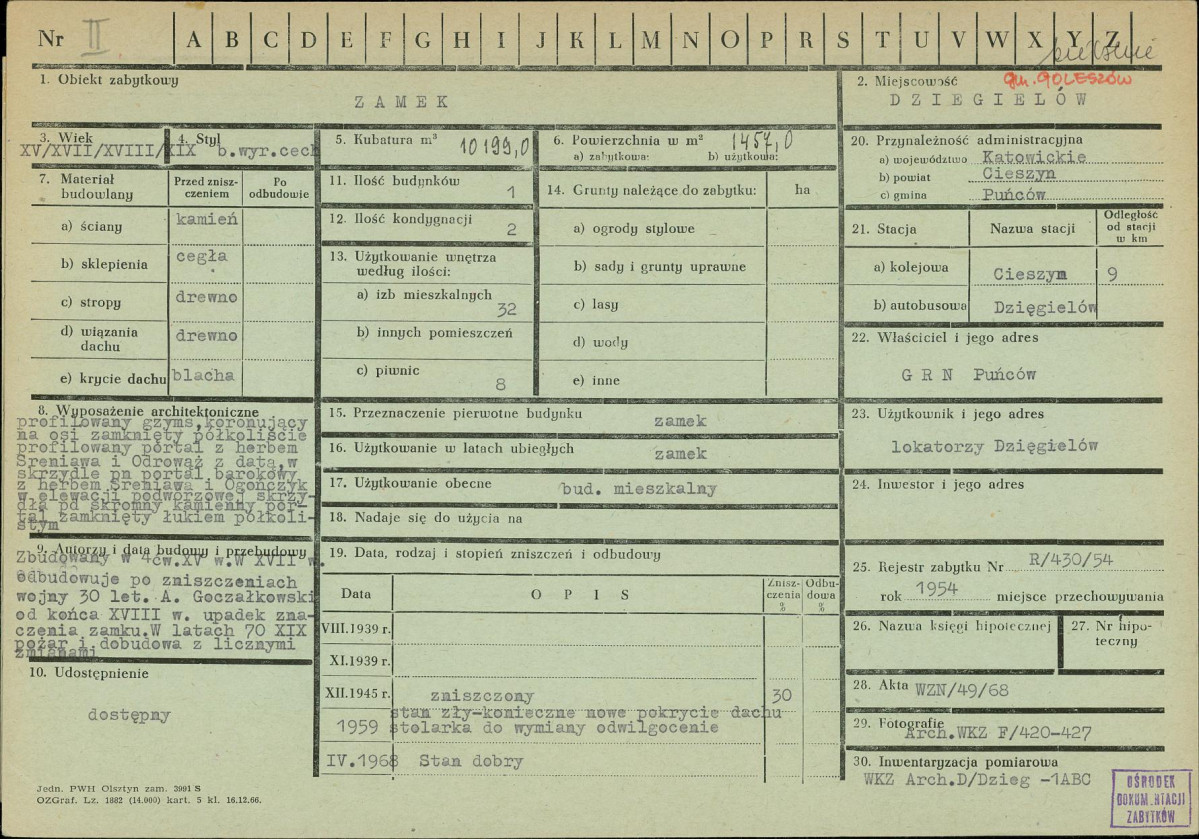 Nr II A B C D E F G H I J K L M N O P R S T U V W X Y Z
1. Obiekt zabytkowy
ZAMEK
2. Miejscowość gm. GOLESZÓW
DZIEGIELÓW
3. Wiek
XV/XVII/XVIII/XIX
4. Styl
b.wyr.cech
5. Kubatura m³ 10199,0
6. Powierzchnia w m² 1457,0
a) zabytkowa: b) użytkowa:
7. Materiał budowlany
Przed zniszczeniem
Po odbudowie
a) ściany kamień
b) sklepienia cegła
c) stropy drewno
d) wiązania dachu drewno
e) krycie dachu blacha
8. Wyposażenie architektoniczne
profilowany gzyms,koronujący
na osi zamknięty półkoliście
profilowany portal z herbem
Sreniawa i Odrowąż z datą,w
skrzydle pn portal barokowy
z herbem Sreniawa i Ogończyk
w elewacji podwórzowej skrzy-
dła pd skromny kamienny por-
tal zamknięty łukiem półkoli-
stym
9. Autorzy i data budowy i przebudowy
Zbudowany w 4ćw.XV w.W XVII w.
odbudowuje po zniszczeniach
wojny 30 let. A. Goczałkowski
od końca XVIII w. upadek zna-
czenia zamku.W latach 70 XIX
pożar i dobudowa z licznymi
zmianami
10. Udostępnienie
dostępny
11. Ilość budynków 1
12. Ilość kondygnacji 2
13. Użytkowanie wnętrza
według ilości:
a) izb mieszkalnych 32
b) innych pomieszczeń
c) piwnic 8
14. Grunty należące do zabytku: ha
a) ogrody stylowe
b) sady i grunty uprawne
c) lasy
d) wody
e) inne
15. Przeznaczenie pierwotne budynku zamek
16. Użytkowanie w latach ubiegłych zamek
17. Użytkowanie obecne bud. mieszkalny
18. Nadaje się do użycia na
19. Data, rodzaj i stopień zniszczeń i odbudowy
Data OPIS Zniszczenia % Odbudowa %
VIII.1939 r.
XI.1939 r.
XII.1945 r. zniszczony 30
1959 stan zły-konieczne nowe pokrycie dachu
stolarka do wymiany odwilgocenie
IV.1968 Stan dobry
20. Przynależność administracyjna
a) województwo Katowickie
b) powiat Cieszyn
c) gmina Puńców
21. Stacja Nazwa stacji Odległość od stacji w km
a) kolejowa Cieszyn 9
b) autobusowa Dzięgielów
22. Właściciel i jego adres
GRN Puńców
23. Użytkownik i jego adres
lokatorzy Dzięgielów
24. Inwestor i jego adres
25. Rejestr zabytku Nr R/430/54
rok 1954 miejsce przechowywania
26. Nazwa księgi hipotecznej
27. Nr hipoteczny
28. Akta WZN/49/68
29. Fotografie
Arch.WKZ F/420-427
30. Inwentaryzacja pomiarowa
WKZ Arch.D/Dzieg -1ABC
Jedn. PWH Olsztyn zam. 3991 S
OZGraf. Lz. 1882 (14.000) kart. 5 kl. 16.12.66.
OŚRODEK
DOKUMENTACJI
ZABYTKÓW